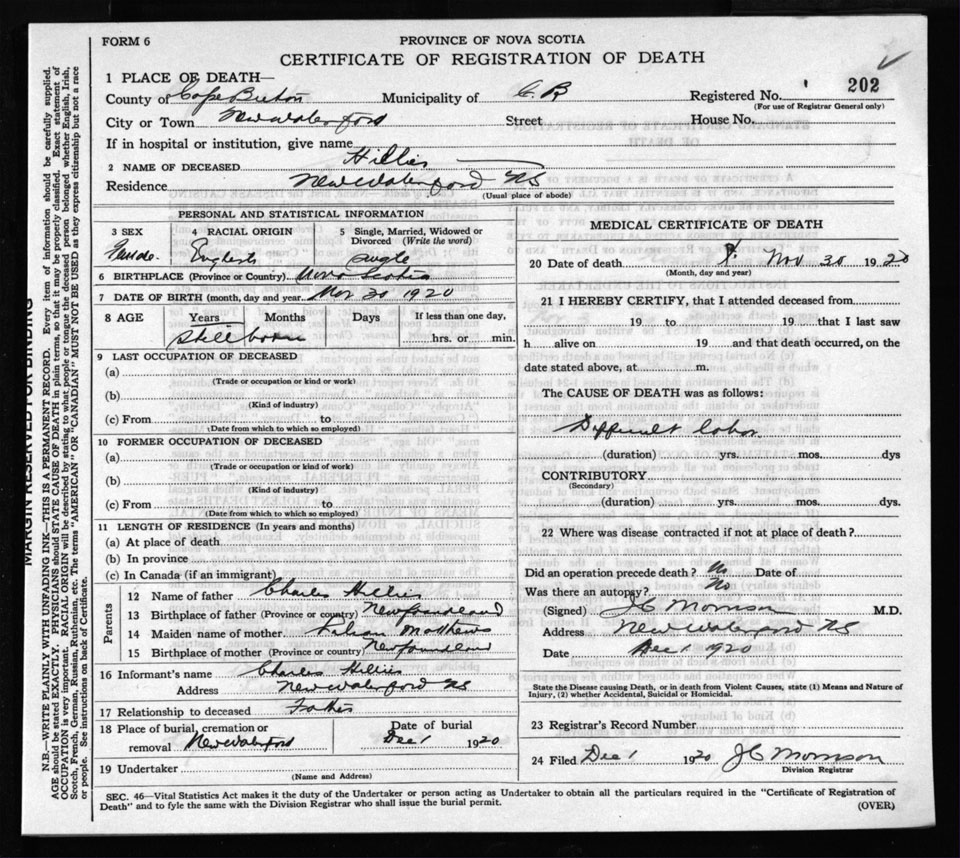 FORM 6
PROVINCE OF NOVA SCOTIA
CERTIFICATE OF REGISTRATION OF DEATH
1 PLACE OF DEATH—
County of Cape Breton Municipality of C. B. Registered No. 202
(For use of Registrar General only)
City or Town New Waterford Street House No.
If in hospital or institution, give name
2 NAME OF DECEASED Hillier
Residence New Waterford NS
(Usual place of abode)
PERSONAL AND STATISTICAL INFORMATION
3 SEX 4 RACIAL ORIGIN 5 Single, Married, Widowed or Divorced (Write the word)
Female English Single
6 BIRTHPLACE (Province or Country) Nova Scotia
7 DATE OF BIRTH (month, day and year Nov 30 1920
8 AGE Years Months Days If less than one day,
Stillborn hrs. or min.
9 LAST OCCUPATION OF DECEASED
(a)
(Trade or occupation or kind or work)
(b)
(Kind of industry)
(c) From to
(Date from which to which so employed)
10 FORMER OCCUPATION OF DECEASED
(a)
(Trade or occupation or kind or work)
(b)
(Kind of industry)
(c) From to
(Date from which to which so employed)
11 LENGTH OF RESIDENCE (In years and months)
(a) At place of death
(b) In province
(c) In Canada (if an immigrant)
Parents
12 Name of father Charles Hillier
13 Birthplace of father (Province or country) Newfoundland
14 Maiden name of mother Matthews
15 Birthplace of mother (Province or country) Newfoundland
16 Informant's name Charles Hillier
Address New Waterford NS
17 Relationship to deceased Father
18 Place of burial, cremation or removal New Waterford Date of burial Dec 1 1920
19 Undertaker
(Name and Address)
MEDICAL CERTIFICATE OF DEATH
20 Date of death Nov 30 1920
(Month, day and year)
21 I HEREBY CERTIFY, that I attended deceased from
19 to 19 that I last saw
h alive on 19 and that death occurred, on the
date stated above, at m.
The CAUSE OF DEATH was as follows:
Difficult labor
(duration) yrs. mos. dys
CONTRIBUTORY
(Secondary)
(duration) yrs. mos. dys.
22 Where was disease contracted if not at place of death?
Did an operation precede death? No Date of
Was there an autopsy? No
(Signed) J C Morrison M.D.
Address New Waterford NS
Date Dec 1 1920
State the Disease causing Death, or in death from Violent Causes, state (1) Means and Nature of
Injury, (2) whether Accidental, Suicidal or Homicidal.
23 Registrar's Record Number
24 Filed Dec 1 1920 J C Morrison
Division Registrar
SEC. 46—Vital Statistics Act makes it the duty of the Undertaker or person acting as Undertaker to obtain all the particulars required in the "Certificate of Registration of
Death" and to fyle the same with the Division Registrar who shall issue the burial permit.
(OVER)
MARGIN RESERVED FOR BINDING
N.B.—WRITE PLAINLY WITH UNFADING INK—THIS IS A PERMANENT RECORD. Every item of information should be carefully supplied.
AGE should be stated EXACTLY. PHYSICIANS should STATE CAUSE OF DEATH in plain terms, so that it may be properly classified. Exact statement of
OCCUPATION is very important. RACIAL ORIGIN will be described by stating to what people or tongue the deceased person belonged whether English, Irish,
Scotch, French, German, Russian, Ruthenian, etc. The terms "AMERICAN" OR "CANADIAN" MUST NOT BE USED as they express citizenship but not a race
or people. See instructions on back of Certificate.